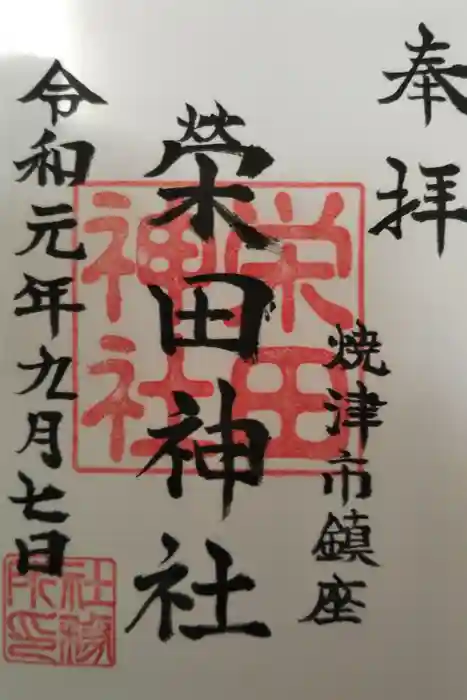 奉拝
焼津市鎮座
榮田神社
栄田神社
令和元年九月七日
社務所印